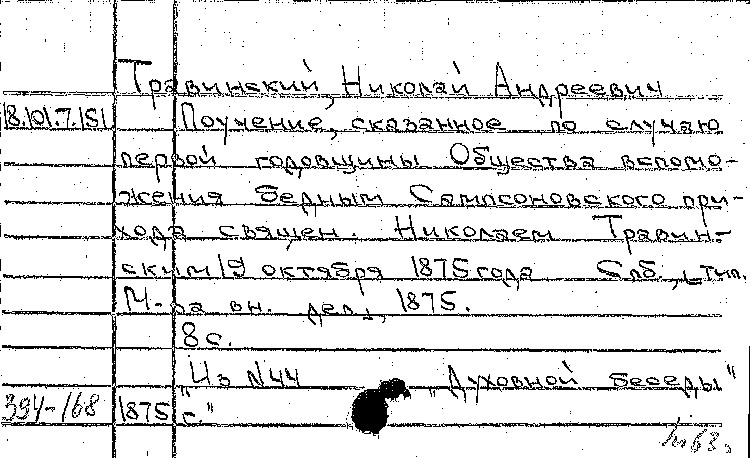 Травинский, Николай Андреевич
18.101.7.151 Поучение, сказанное по случаю
первой годовщины Общества вспомо-
жения бедным Сампсоновского при-
хода священ. Николаем Травин-
ским 19 октября 1875 года Спб., тип.
М-ва вн. дел, 1875.
8 с.
"Из №44 "Духовной беседы"
394-168 1875 г."